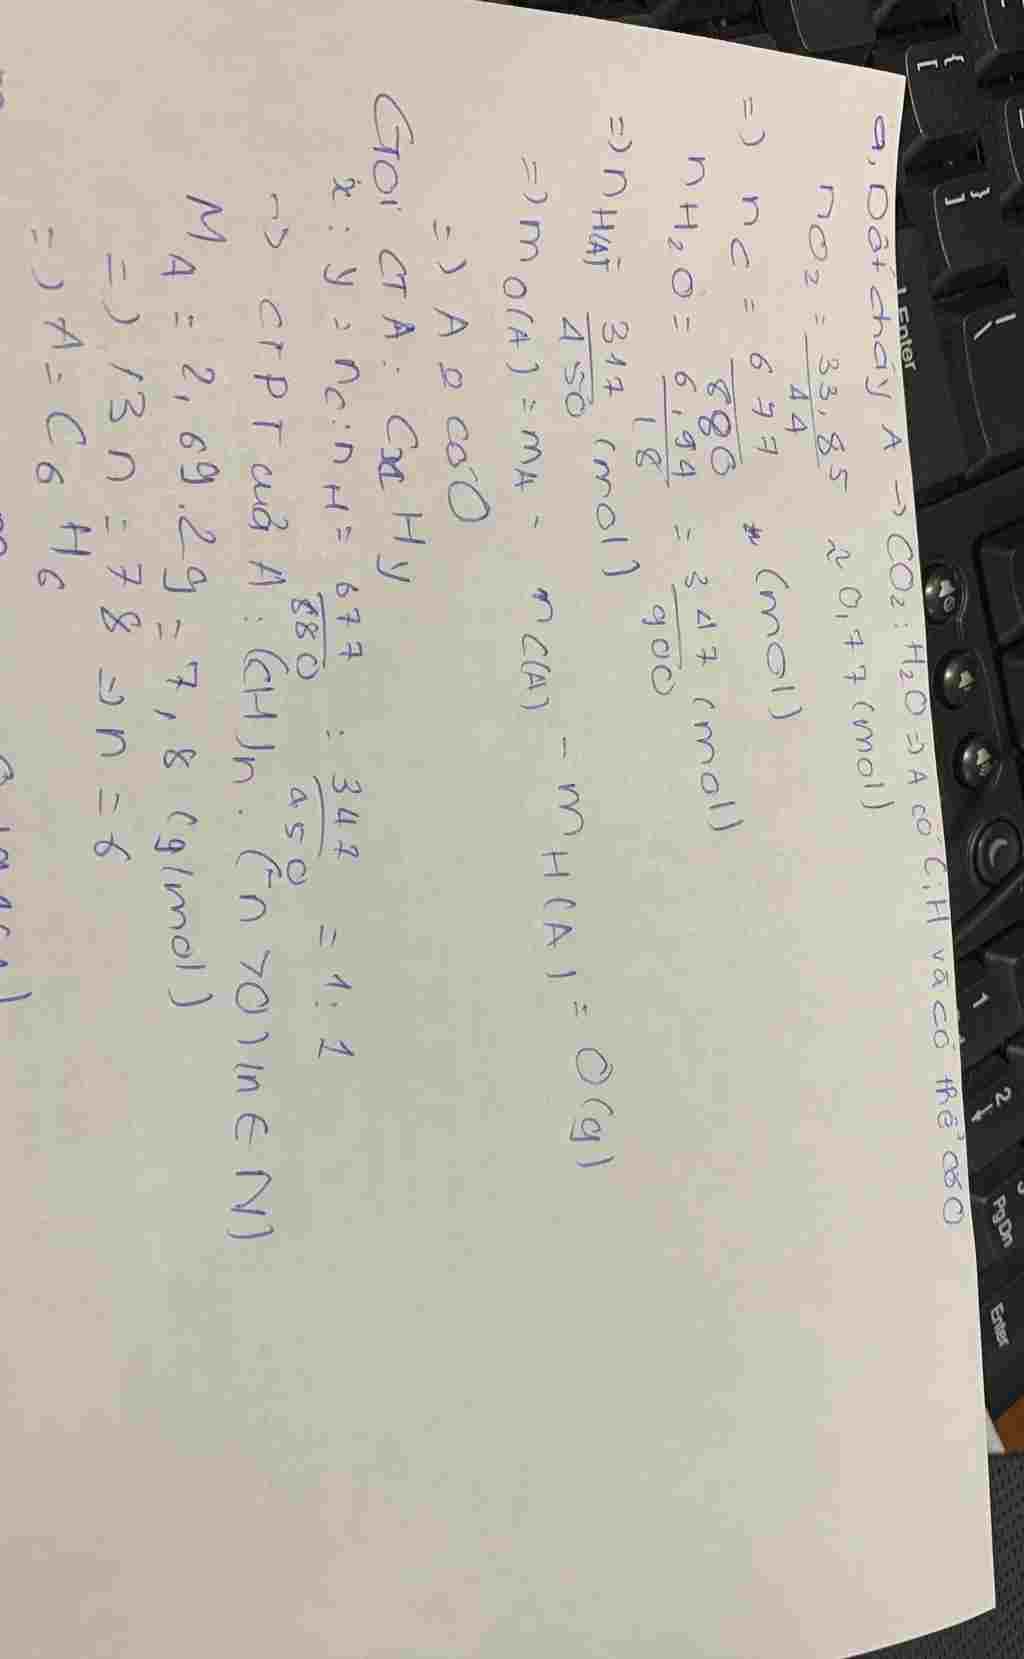 a, Đốt cháy A → CO2; H2O ⇒ A có C, H và có thể có O
nO2 = 33,85 / 44 ≈ 0,77 (mol)
=> nC = 677 / 880 (mol)
nH2O = 6,94 / 18 = 347 / 900 (mol)
=> nH(A) 347 / 450 (mol)
=> mO(A) = mA - mC(A) - mH(A) = 0(g)
=> A có O
Gọi CT A: CxHy
x : y = nC : nH = 677 / 880 : 347 / 450 = 1 : 1
→ CTPT của A: (CH)n. (n > 0) (n ∈ N)
MA = 2,69.29 = 7,8 (g/mol)
=> 13n = 78 => n = 6
=> A = C6H6
[
{
]
}
\
|
Enter
1
2
PgDn
Enter